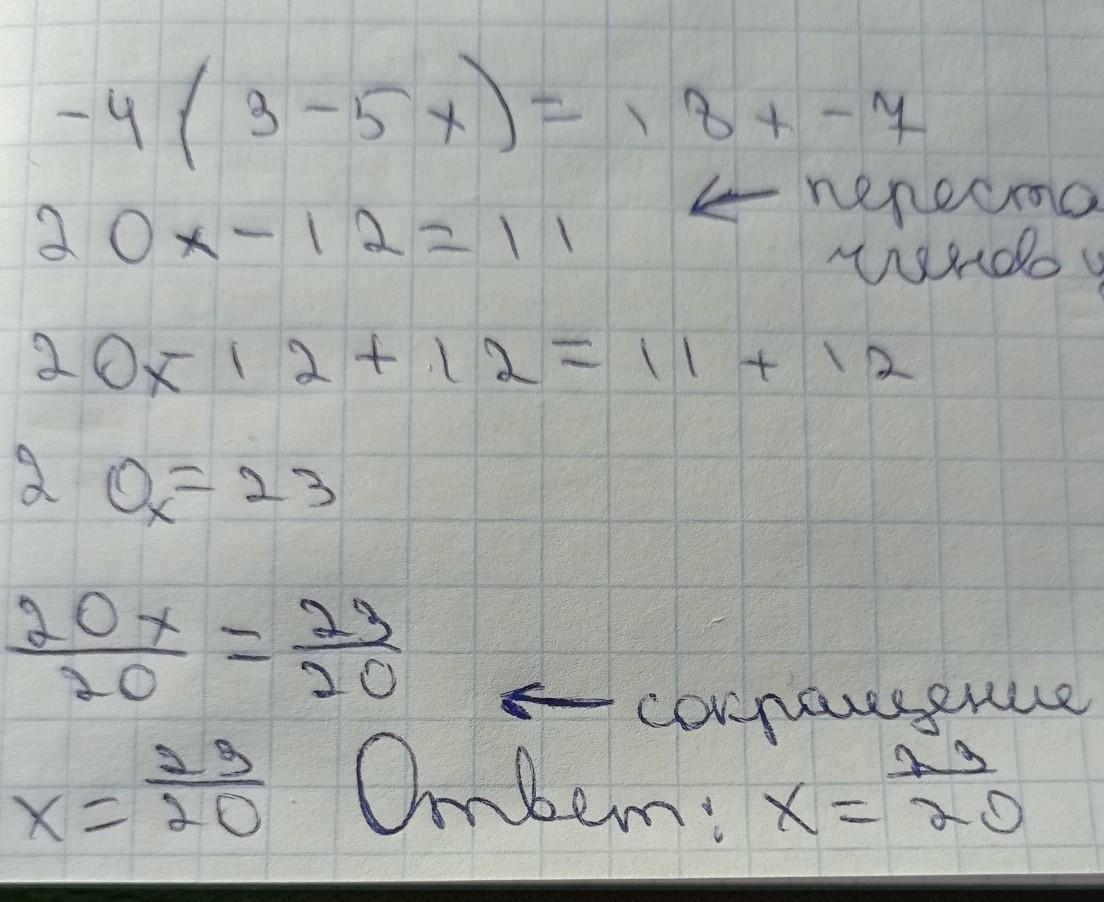 -4(3-5x)=18+-7
20x-12=11
← 
20x-12+12=11+12
20x=23
20x/20=23/20
← сокращение
x=23/20 Ответ: x=23/20